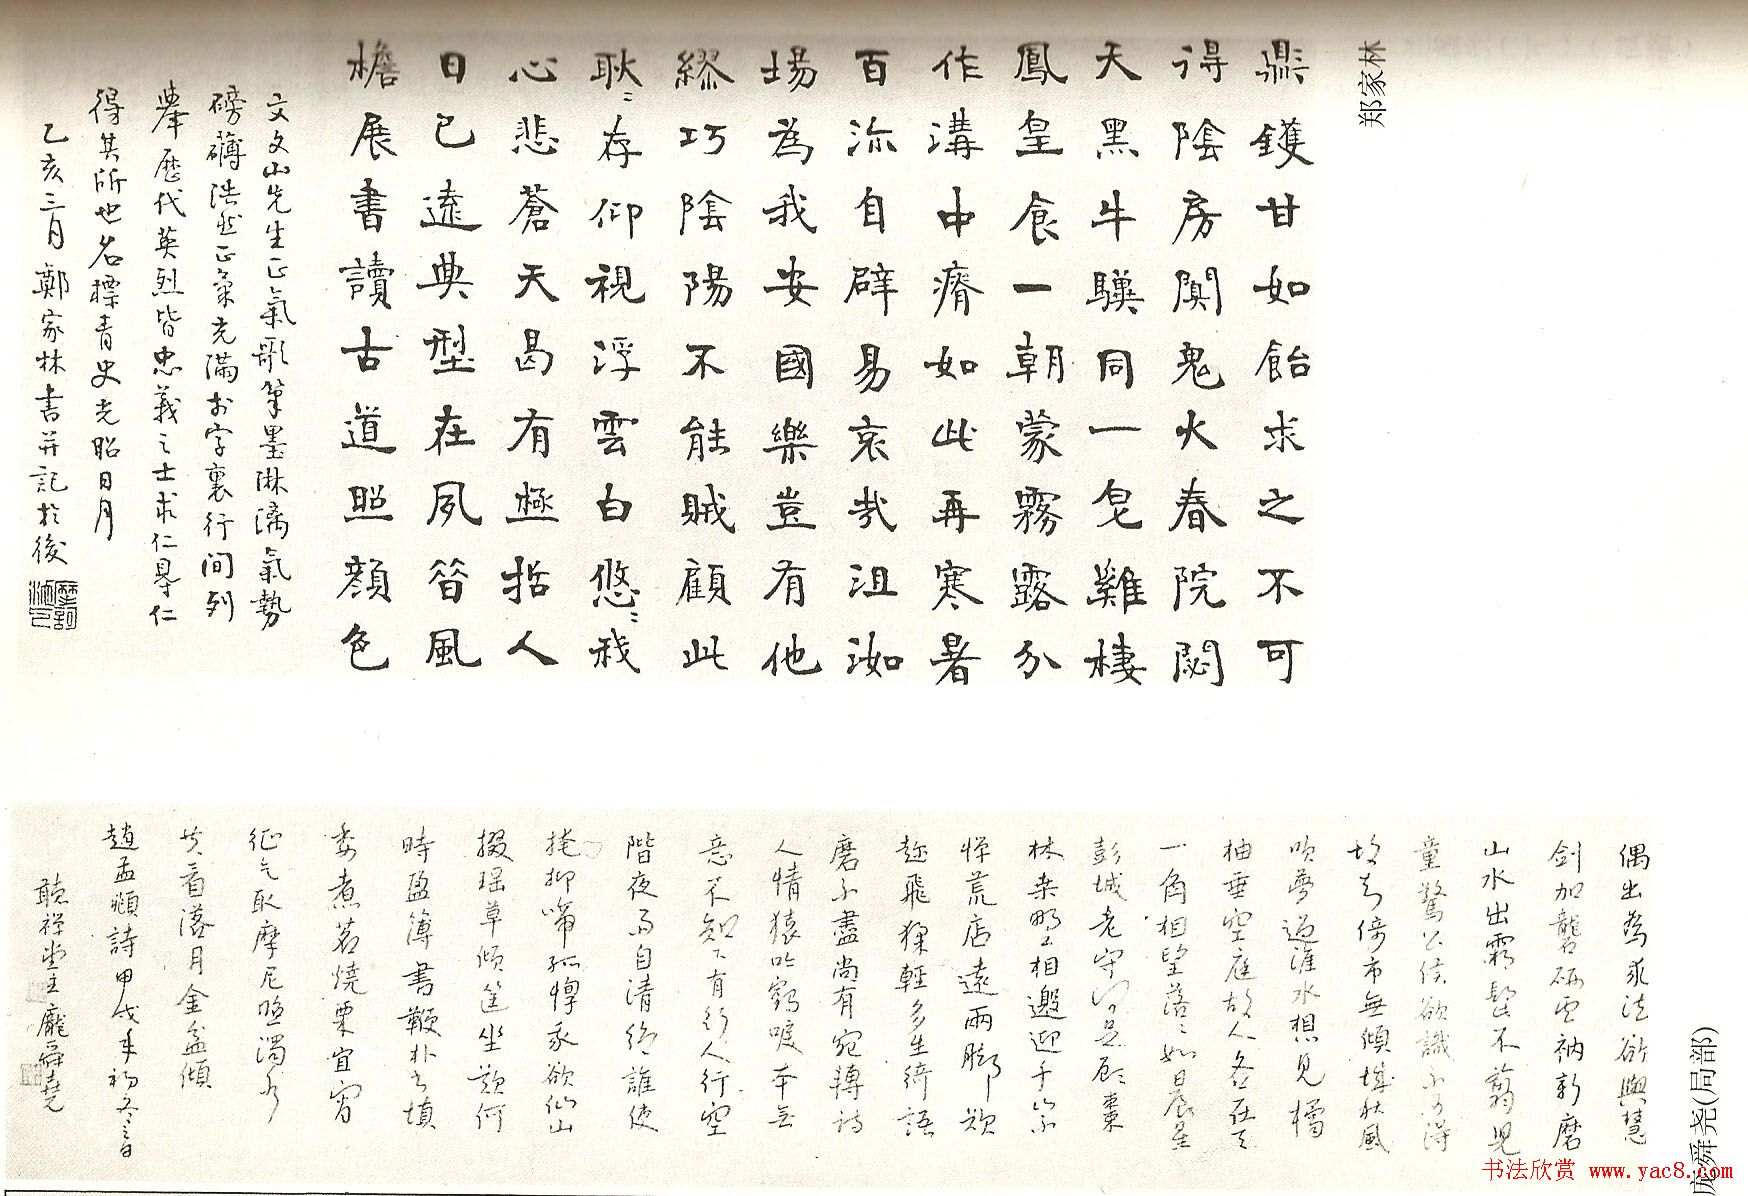 郑家林
鼎鑊甘如飴求之不可
得陰房闃鬼火春院閟
天黑牛驥同一皂雞棲
鳳皇食一朝蒙霧露分
作溝中瘠如此再寒暑
百沴自辟易哀哉沮洳
場為我安國樂豈有他
繆巧陰陽不能賊顧此
耿〻存仰視浮雲白悠〻我
心悲蒼天曷有極哲人
日已遠典型在夙昔風
檐展書讀古道照顏色
文文山先生正氣歌筆墨淋漓氣勢
磅礴浩然正氣充滿於字裏行間列
舉歷代英烈皆忠義之士求仁得仁
得其所也名標青史光昭日月
乙亥三月鄭家林書并記於後
偶出為求法欲與慧
劍加礱硎雲衲新磨
山水出霜髭不翦兒
童驚公侯欲識不可得
故知倚市無傾城秋風
吹夢過淮水想見橘
柚垂空庭故人各在天
一角相望落〻如晨星
彭城老守何足顧棗
林桑野相邀迎千山不
憚荒店遠兩腳欲
趁飛猱輕多生綺語
磨不盡尚有宛轉詩
人情猿吟鶴唳本無
意不知下有行人行空
階夜雨自清絕誰使
掩抑啼孤惸我欲仙山
掇瑤草傾筐坐歎何
時盈簿書鞭扑晝填
委煮茗燒栗宜宵
征乞取摩尼照濁水
共看落月金盆傾
趙孟頫詩甲戌年初冬書
聽禪堂主龐舜堯
庞舜尧(局部)
书法欣赏 www.yac8.com